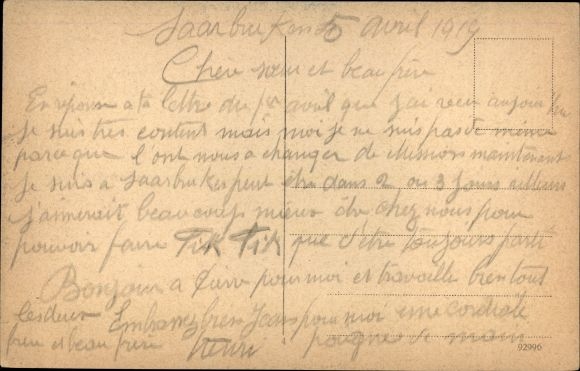 Saarbruken 5 avril 1919
Chère sœur et beau frère
En réponse a ta lettre du 1er avril que j'ai recu aujour
Je suis très content mais moi je ne suis pas de même
parce que l'ont nous a changer de maintenant
Je suis a Saarbruken peut être dans 2 ou 3 jours ailleurs
j'aimerait beaucoup mieux être chez nous pour
pouvoir faire Tik Tik que d'être toujours parti
Bonjour a pour moi et travaille bien tout
les deux Embrassez bien pour moi une cordiale
frère et beau frère Henri poigne de main
92996